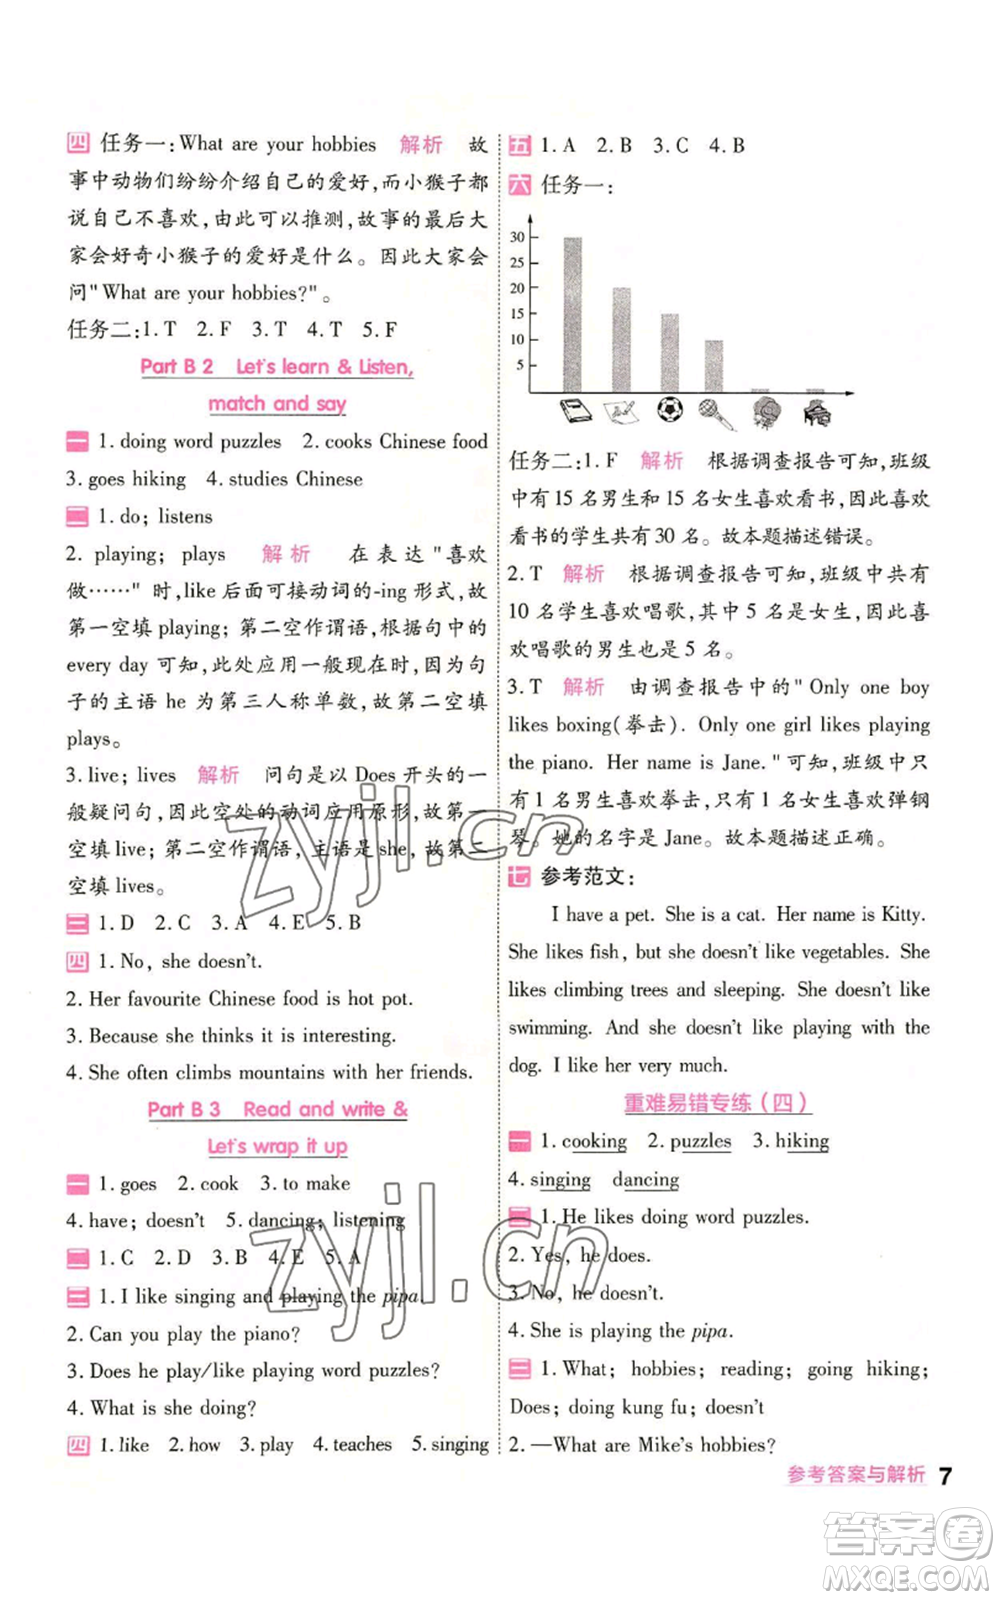 四 任务一:What are your hobbies 解析 故
事中动物们纷纷介绍自己的爱好,而小猴子都
说自己不喜欢,由此可以推测,故事的最后大
家会好奇小猴子的爱好是什么。因此大家会
问"What are your hobbies?"。
任务二:1. T 2. F 3. T 4. T 5. F
Part B 2 Let's learn & Listen,
match and say
一 1. doing word puzzles 2. cooks Chinese food
3. goes hiking 4. studies Chinese
二 1. do; listens
2. playing; plays 解析 在表达"喜欢
做……"时,like 后面可接动词的-ing 形式,故
第一空填 playing; 第二空作谓语,根据句中的
every day 可知,此处应用一般现在时,因为句
子的主语 he 为第三人称单数,故第二空填
plays。
3. live; lives 解析 问句是以 Does 开头的一
般疑问句,因此空处的动词应用原形,故第一
空填 live; 第二空作谓语,主语是 she,故第二
空填 lives。
三 1. D 2. C 3. A 4. E 5. B
四 1. No, she doesn't.
2. Her favourite Chinese food is hot pot.
3. Because she thinks it is interesting.
4. She often climbs mountains with her friends.
Part B 3 Read and write &
Let's wrap it up
一 1. goes 2. cook 3. to make
4. have; doesn't 5. dancing; listening
二 1. C 2. D 3. B 4. E 5. A
三 1. I like singing and playing the pipa.
2. Can you play the piano?
3. Does he play/like playing word puzzles?
4. What is she doing?
四 1. like 2. how 3. play 4. teaches 5. singing
五 1. A 2. B 3. C 4. B
六 任务一:
30
25
20
15
10
5
任务二:1. F 解析 根据调查报告可知,班级
中有 15 名男生和 15 名女生喜欢看书,因此喜欢
看书的学生共有 30 名。故本题描述错误。
2. T 解析 根据调查报告可知,班级中共有
10 名学生喜欢唱歌,其中 5 名是女生,因此喜
欢唱歌的男生也是 5 名。
3. T 解析 由调查报告中的"Only one boy
likes boxing(拳击). Only one girl likes playing
the piano. Her name is Jane."可知,班级中
只有 1 名男生喜欢拳击,只有 1 名女生喜欢弹钢
琴。她的名字是 Jane。故本题描述正确。
七 参考范文:
I have a pet. She is a cat. Her name is Kitty.
She likes fish, but she doesn't like vegetables. She
likes climbing trees and sleeping. She doesn't like
swimming. And she doesn't like playing with the
dog. I like her very much.
重难易错专练(四)
一 1. cooking 2. puzzles 3. hiking
4. singing dancing
二 1. He likes doing word puzzles.
2. Yes, he does.
3. No, he doesn't.
4. She is playing the pipa.
三 1. What; hobbies; reading; going hiking;
Does; doing kung fu; doesn't
2. —What are Mike's hobbies?
参考答案与解析 7
zyjl.cn
zyjl.cn
答案圈
MXQE.COM